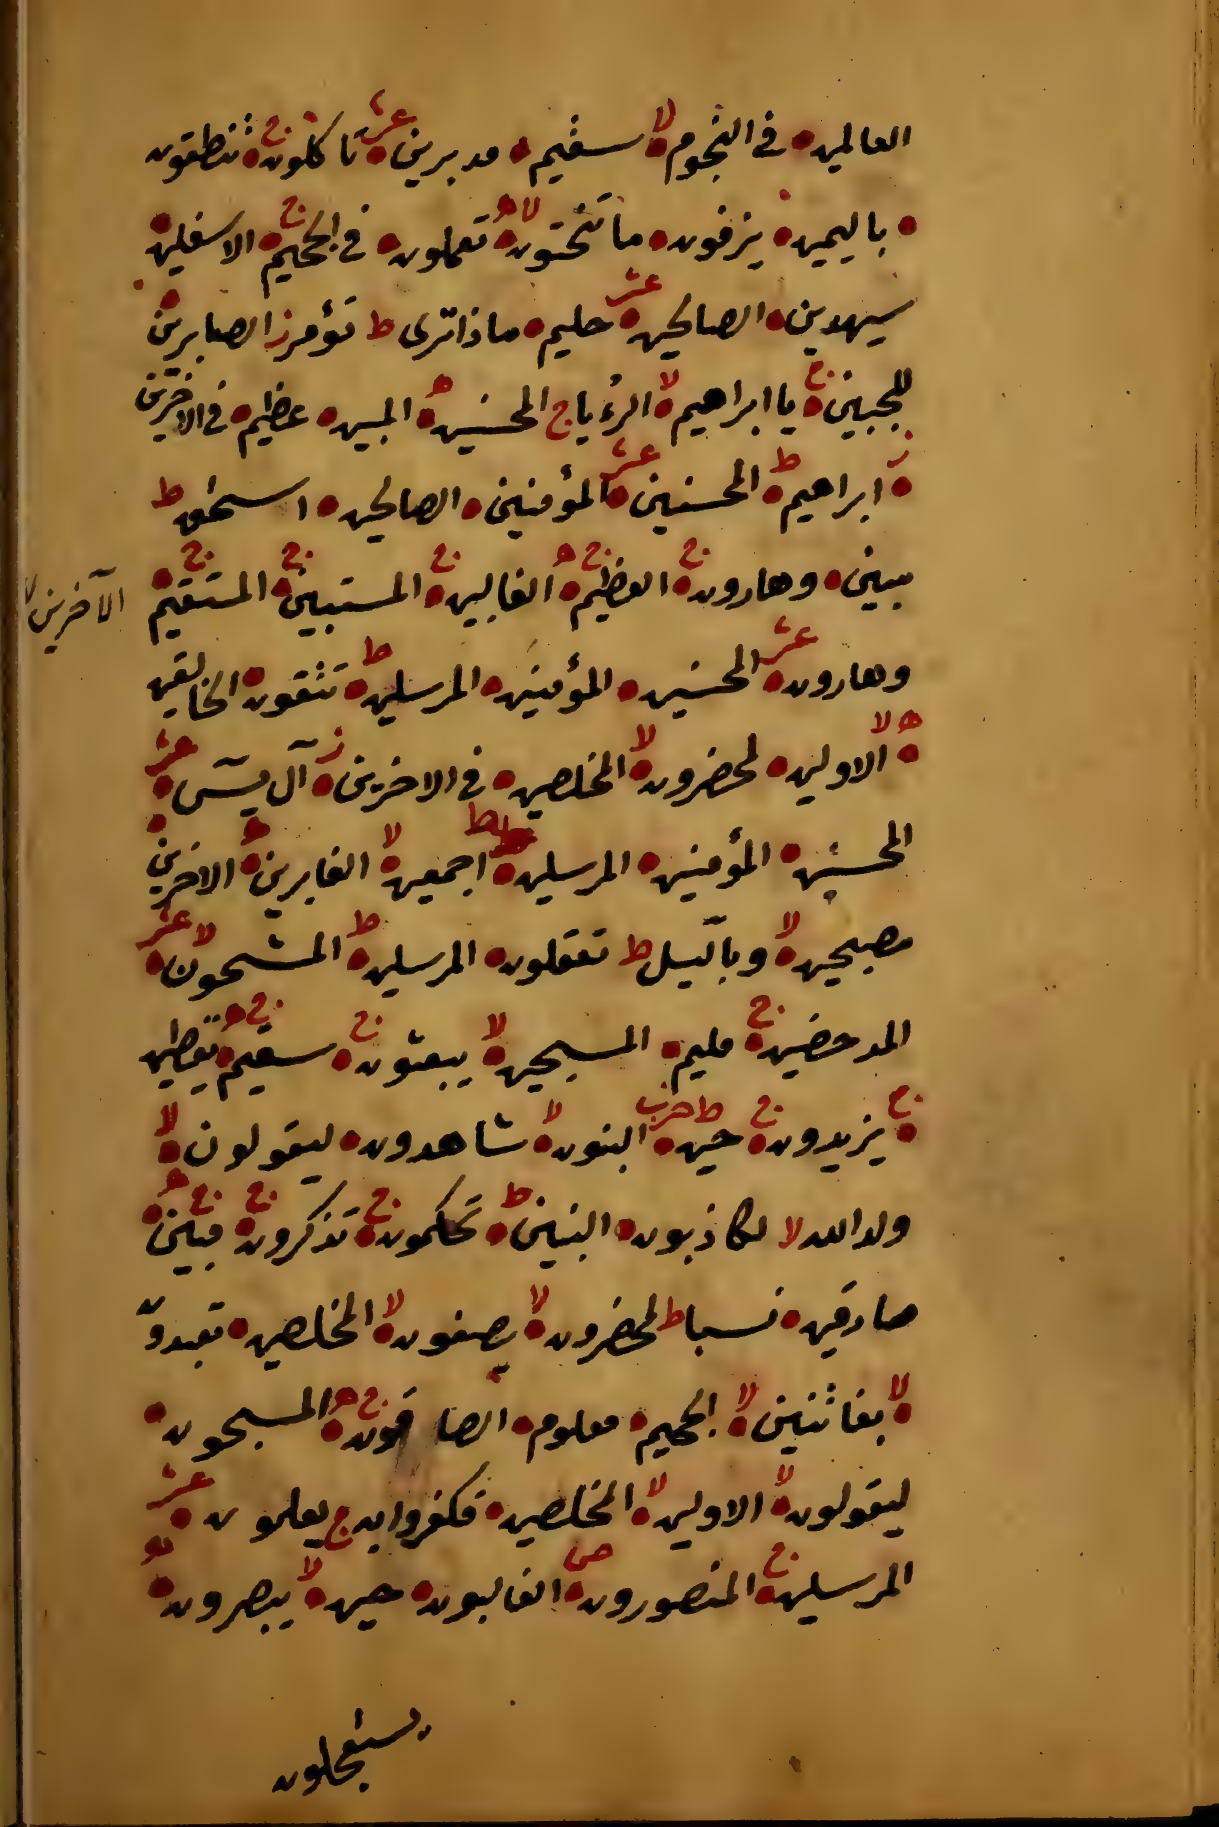 العالمين في النجوم لا سقيم مدبرين عشر تاكلون ج تنطقون
باليمين يزفون ما تنحتون لا ه تعملون في الجحيم ج الاسفلين
سيهدين الصالحين عشر حليم ماذا ترى ط تؤمر ز الصابرين
للجبين ج يا ابراهيم لا الرءيا ج المحسنين ه المبين عظيم في الاخرين
ز ابراهيم ط المحسنين عشر المؤمنين الصالحين اسحق ط
مبين وهارون ج العظيم ج ه الغالبين ج المستبين ج المستقيم ج
الآخرين لا
وهارون عشر المحسنين المؤمنين المرسلين ط تتقون الخالقين
ه لا الاولين لمحضرون لا المخلصين في الاخرين ز آل يسٓ عشر
المحسنين المؤمنين المرسلين ط اجمعين لا الغابرين ه الاخرين
مصبحين لا وباللّيل ط تعقلون المرسلين ط المشحون لا عشر
المدحضين ج مليم المسبحين لا يبعثون ج سقيم ج ه يقطين
ج يزيدون ج حين ط حزب البنون لا شاهدون ليقولون لا
ولد الله لا لكاذبون البنين ط تحكمون ج تذكرون ج مبين ج ه
صادقين نسبا ط لمحضرون لا يصفون لا المخلصين تعبدون
لا بفاتنين لا الجحيم معلوم الصافون ج ه المسبحون
ليقولون لا الاولين لا المخلصين فكفروا به ج يعلمون عشر
المرسلين ج المنصورون ص الغالبون حين لا يبصرون ه
يستعجلون